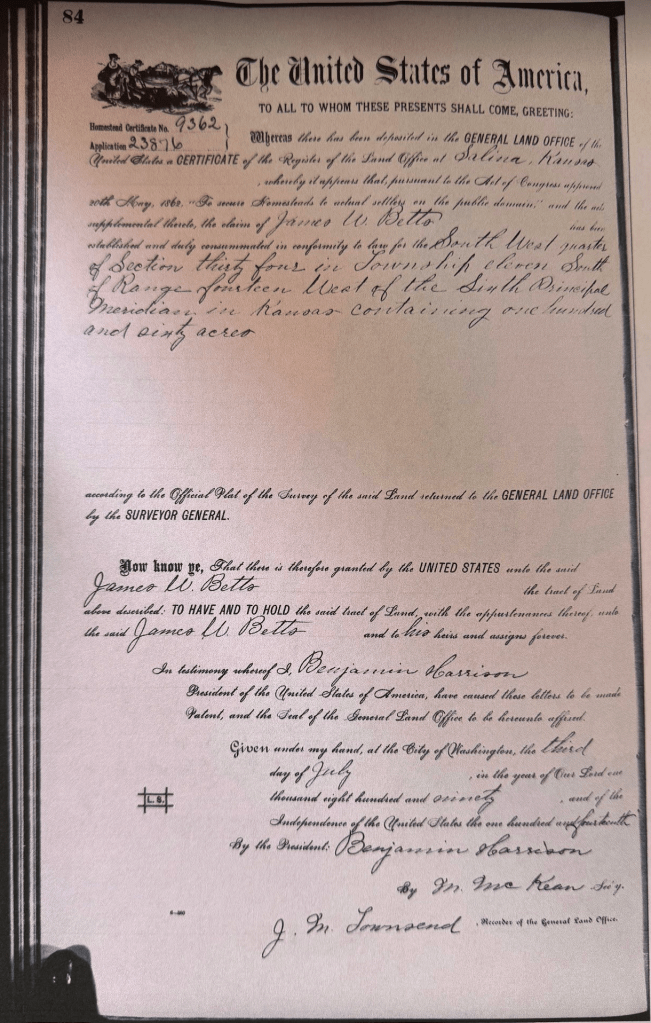 84
The United States of America,
TO ALL TO WHOM THESE PRESENTS SHALL COME, GREETING:
Homestead Certificate No. 9362
Application 23876
Whereas there has been deposited in the GENERAL LAND OFFICE of the
United States a CERTIFICATE of the Register of the Land Office at Salina, Kansas
, whereby it appears that, pursuant to the Act of Congress approved
20th May, 1862, "To secure Homesteads to actual settlers on the public domain," and the acts
supplemental thereto, the claim of James W. Betts has been
established and duly consummated in conformity to law for the South West quarter
of Section thirty four in Township eleven South
of Range fourteen West of the Sixth Principal
Meridian in Kansas containing one hundred
and sixty acres
according to the Official Plat of the Survey of the said Land returned to the GENERAL LAND OFFICE
by the SURVEYOR GENERAL.
Now know ye, That there is therefore granted by the UNITED STATES unto the said
James W. Betts the tract of Land
above described: TO HAVE AND TO HOLD the said tract of Land, with the appurtenances thereof, unto
the said James W. Betts and to his heirs and assigns forever.
In testimony whereof I, Benjamin Harrison
President of the United States of America, have caused these letters to be made
Patent, and the Seal of the General Land Office to be hereunto affixed.
Given under my hand, at the City of Washington, the third
day of July , in the year of Our Lord one
thousand eight hundred and ninety , and of the
Independence of the United States the one hundred and fourteenth
L. S.
By the President: Benjamin Harrison
By M. McKean Sec'y.
J. M. Townsend , Recorder of the General Land Office.